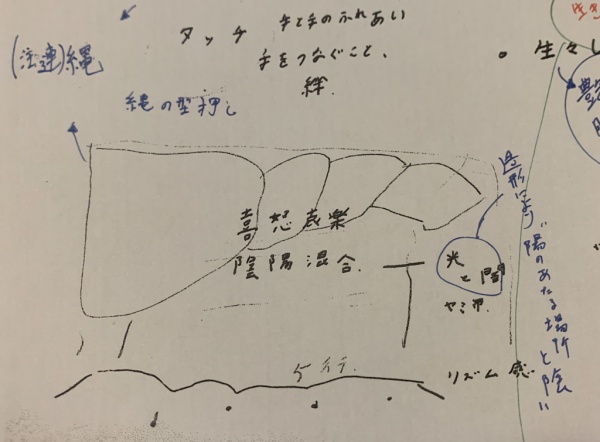 タッチ 手と手のふれあい
手をつなぐこと、
絆.
(注連)縄
縄の型押し
・生々し
喜怒哀楽
陰陽混合.
光と闇
造形により"陽のあたる場所と陰"
リズム感